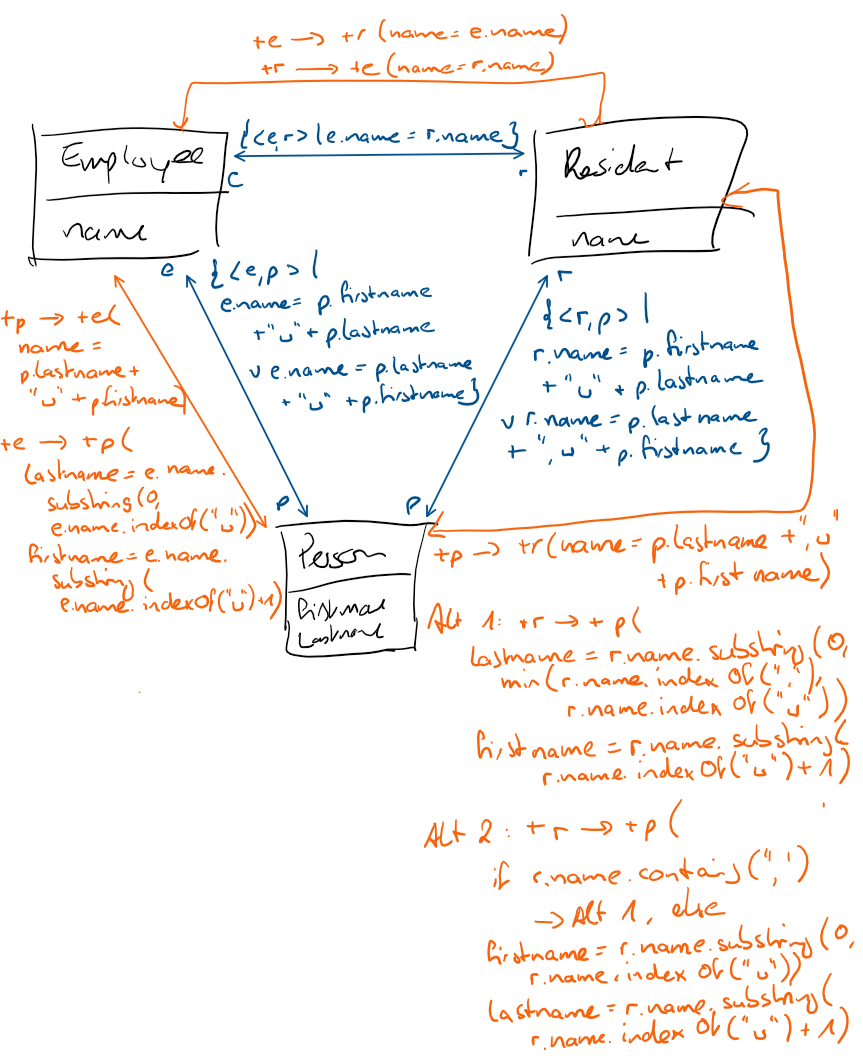 +e → +r (name = e.name)
+r → +e (name = r.name)
{<e,r> | e.name = r.name}
Employee
name
Resident
name
e
r
e
{<e,p> |
e.name = p.firstname
+"␣"+ p.lastname
∨ e.name = p.lastname
+ "␣" + p.firstname}
r
{<r,p> |
r.name = p.firstname
+ "␣" + p.lastname
∨ r.name = p.lastname
+ ",␣" + p.firstname}
+p → +e(
name =
p.lastname +
"␣" + p.firstname)
+e → +p(
lastname = e.name.
substring(0,
e.name.indexOf("␣"))
firstname = e.name.
substring(
e.name.indexOf("␣")+1)
p
p
Person
firstname
lastname
+p → +r(name = p.lastname + ",␣"
+ p.firstname)
Alt 1: +r → +p(
lastname = r.name.substring(0,
min(r.name.indexOf(","),
r.name.indexOf("␣"))
firstname = r.name.substring(
r.name.indexOf("␣")+1)
Alt 2: +r → +p(
if r.name.contains(",")
→ Alt 1, else
firstname = r.name.substring(0,
r.name.indexOf("␣"))
lastname = r.name.substring(
r.name.indexOf("␣")+1)